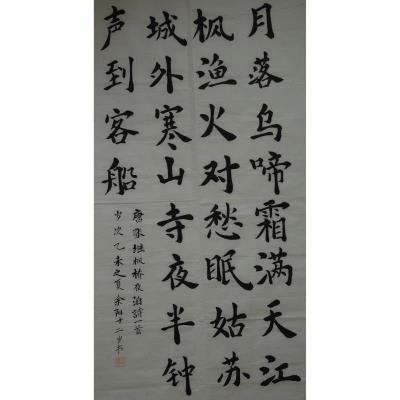 月落乌啼霜满天江
枫渔火对愁眠姑苏
城外寒山寺夜半钟
声到客船
唐张继枫桥夜泊诗一首
岁次乙未之夏余阳十二岁书